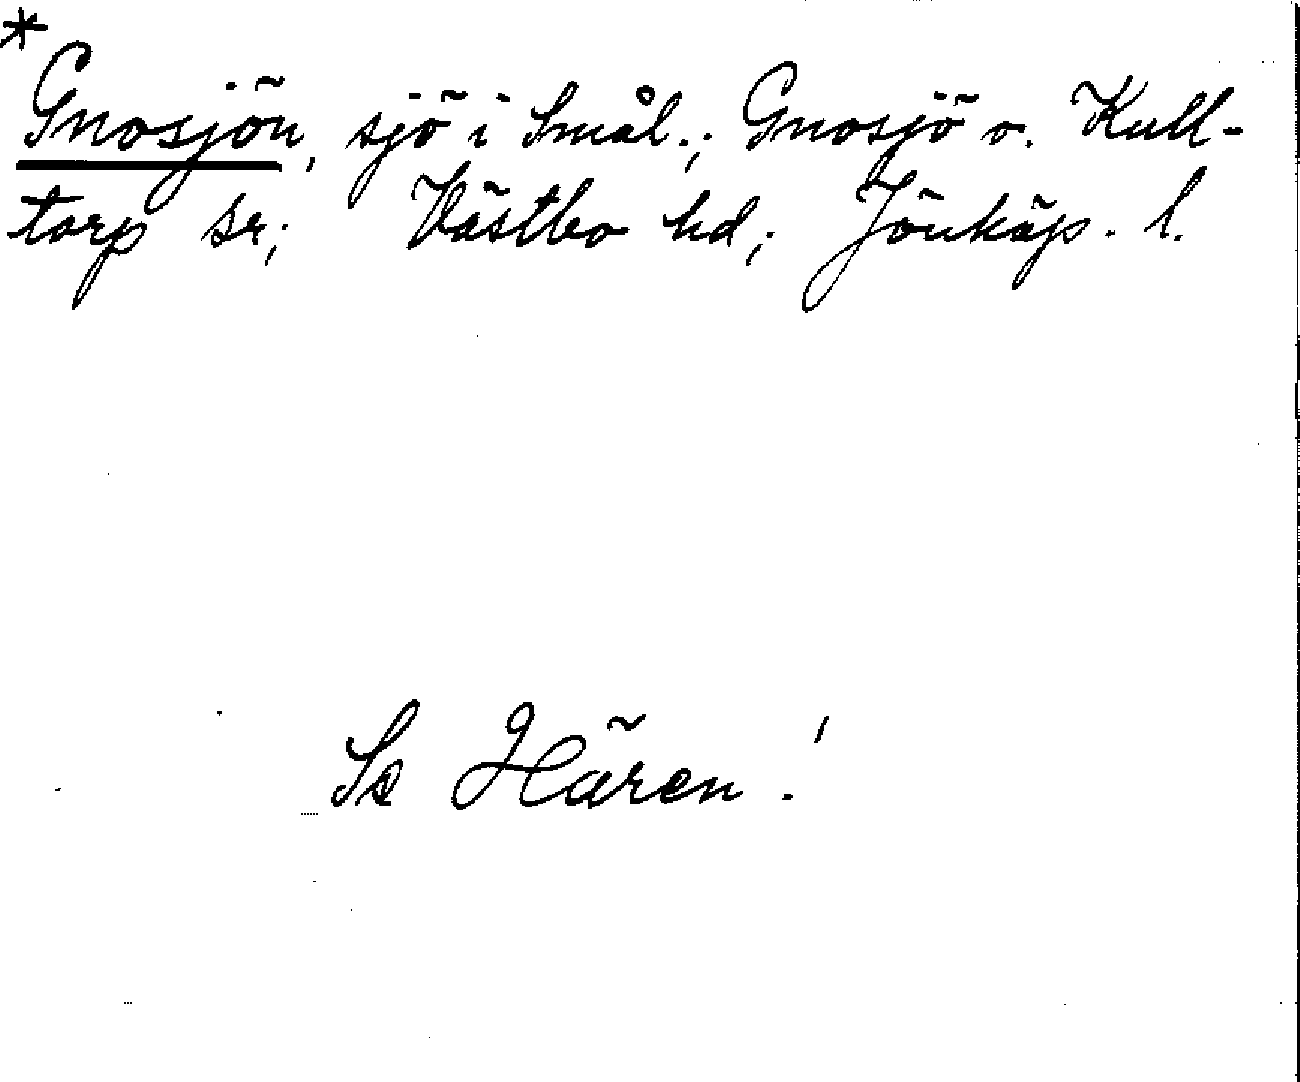 *
Gnosjön, sjö i Smål.; Gnosjö o. Kull-
torp sr; Västbo hd; Jönköp. l.
Se Hären!